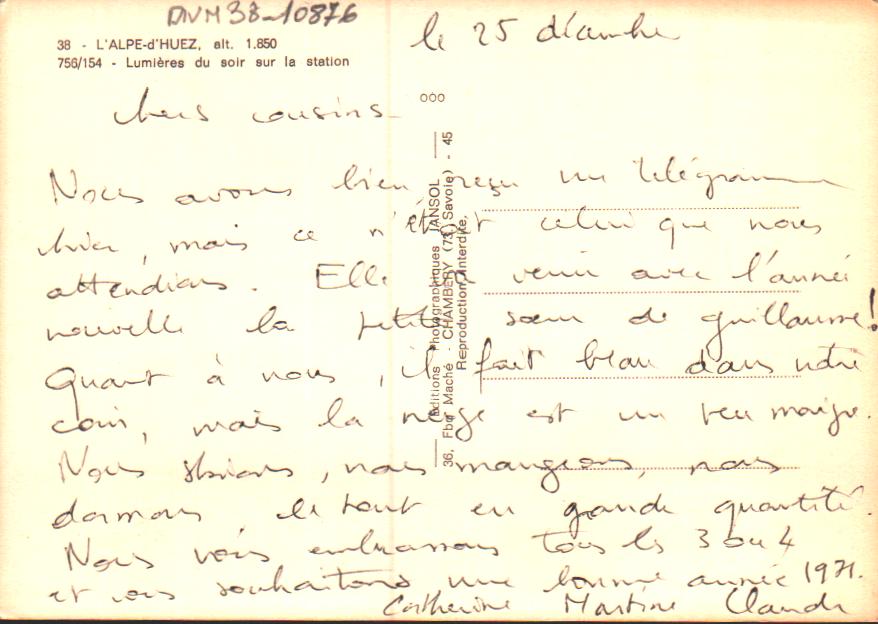 DNM38-10876
38 - L'ALPE-d'HUEZ, alt. 1.850
756/154 - Lumières du soir sur la station
le 25 décembre
Chers cousins
000
Editions Photographiques JANSOL
36, Fbg Maché - CHAMBERY (73 Savoie) - 45
Reproduction interdite,
Nous avons bien reçu un télégramme
hier, mais ce n'était celui que nous
attendions. Elle a venir avec l'année
nouvelle la petite sœur de guillaume!
Quant à nous, il fait beau dans notre
coin, mais la neige est un peu maigre.
Nous skions, nous mangeons, nous
dormons le tout en grande quantité.
Nous vous embrassons tous les 3 ou 4
et vous souhaitons une bonne année 1971.
Catherine Martine Claude